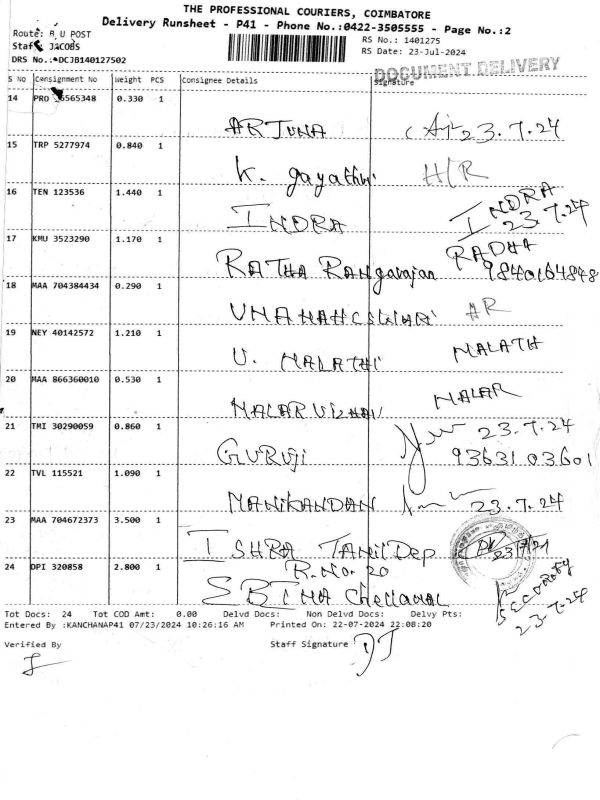 THE PROFESSIONAL COURIERS, COIMBATORE
Delivery Runsheet - P41 - Phone No.:0422-3505555 - Page No.:2
Route: B U POST
RS No.: 1401275
Staff JACOBS
RS Date: 23-Jul-2024
DRS No.: DCJB140127502
DOCUMENT DELIVERY
S No Consignment No Weight PCS Consignee Details Signature
14 PRO 565348 0.330 1
ARJUNA 23.7.24
15 TRP 5277974 0.840 1
K. gayathri H/R
16 TEN 123536 1.440 1
INDRA INDRA
23.7.24
17 KMU 3523290 1.170 1
RATHA RANgarajan RADHA
9840164848
18 MAA 704384434 0.290 1
UMAMAHESWARI HR
19 NEY 40142572 1.210 1
U. MALATHI MALATH
20 MAA 866360010 0.530 1
MALARVIZHI MALAR
21 TMI 30290059 0.860 1
GURUJI 23.7.24
93631 03601
22 TVL 115521 1.090 1
MANIKANDAN 23.7.24
23 MAA 704672373 3.500 1
ISHRA TAMIL Dep 23/7/24
R.No. 20
24 DPI 320858 2.800 1
Chellamal
SECURITY
23.7.24
Tot Docs: 24 Tot COD Amt: 0.00 Delvd Docs: Non Delvd Docs: Delvy Pts:
Entered By :KANCHANAP41 07/23/2024 10:26:16 AM Printed On: 22-07-2024 22:08:20
Verified By Staff Signature